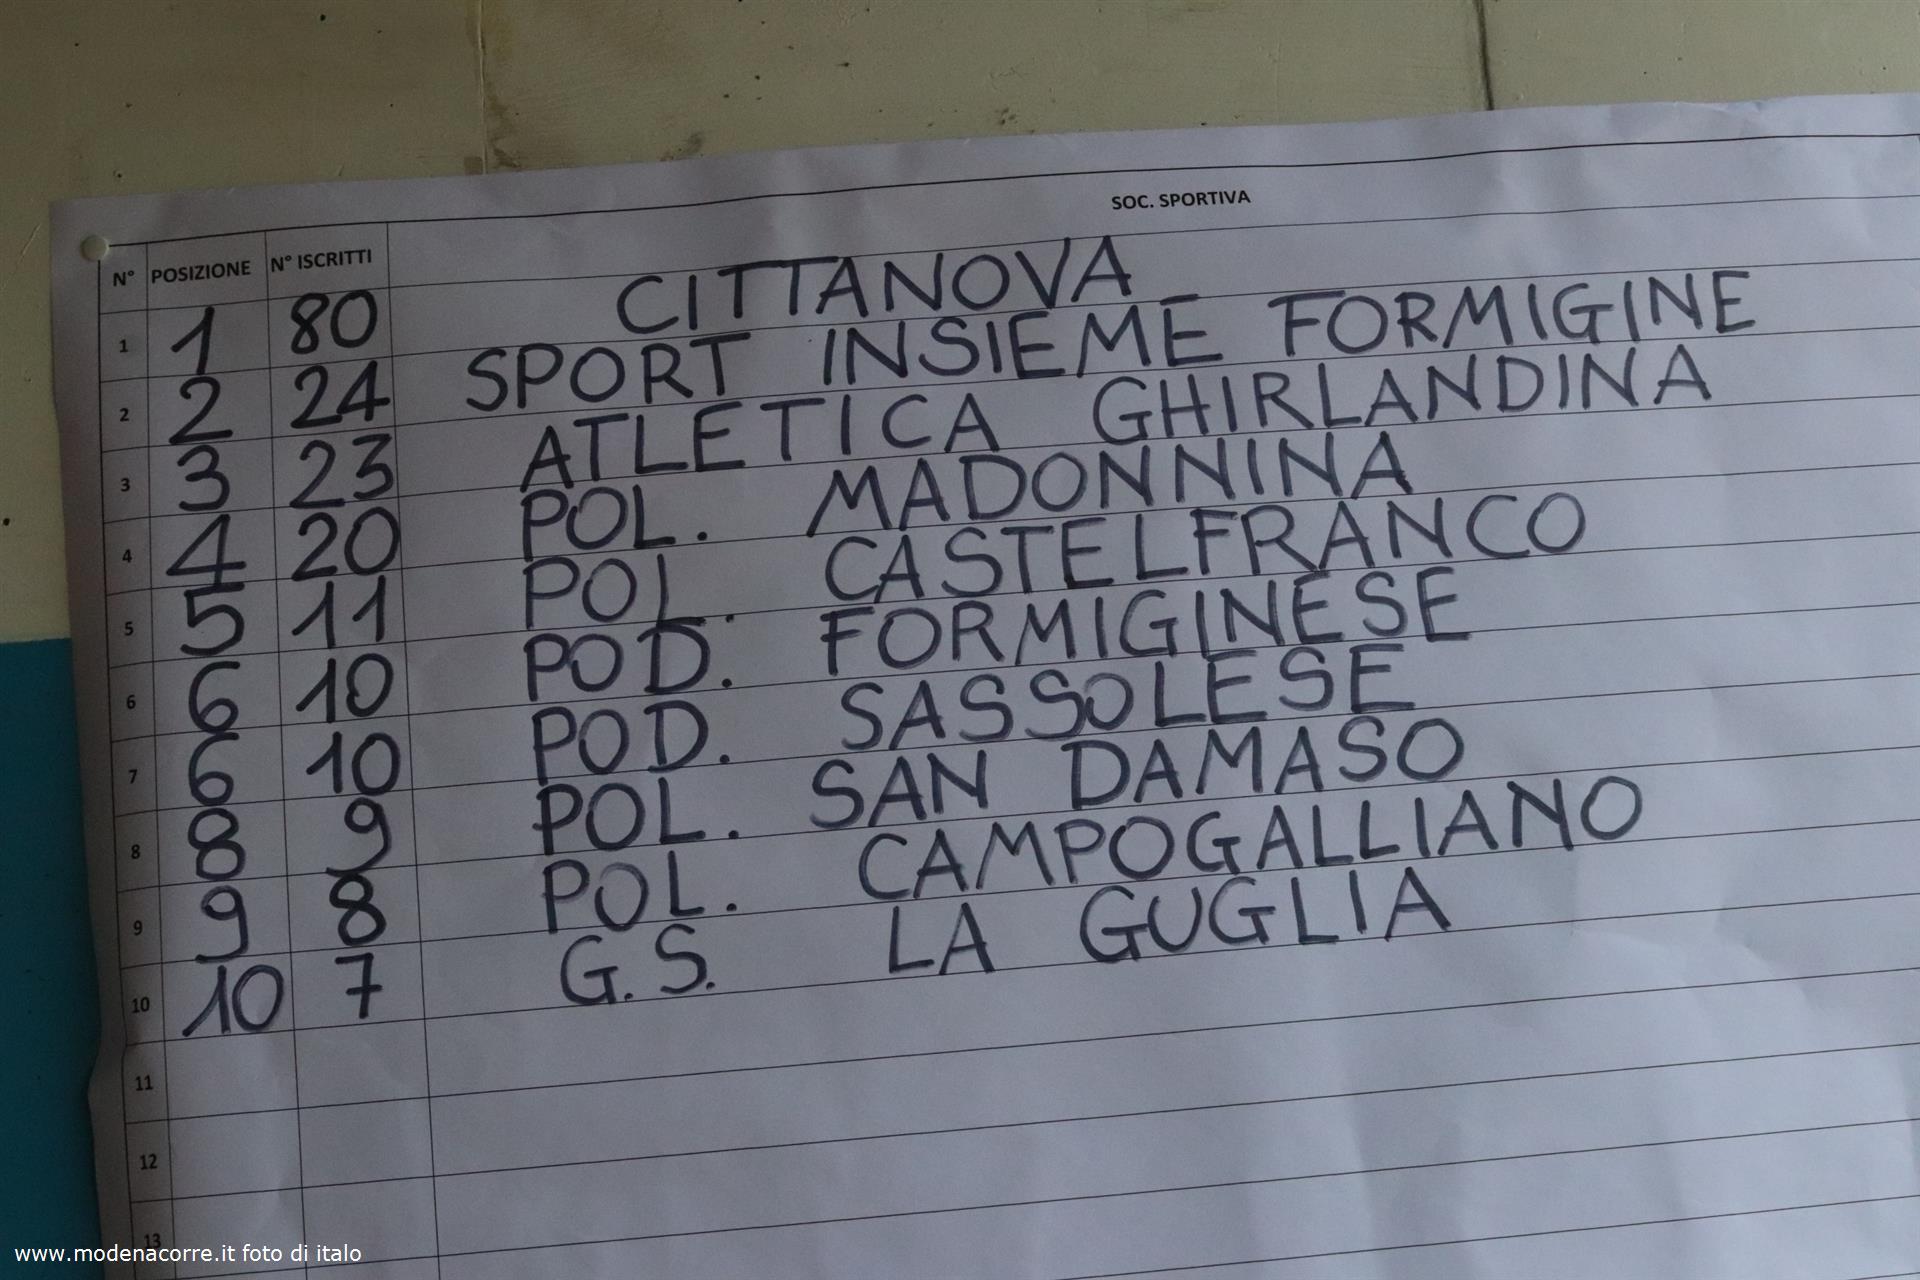 SOC. SPORTIVA
N° POSIZIONE N° ISCRITTI
1 1 80 CITTANOVA
2 2 24 SPORT INSIEME FORMIGINE
3 3 23 ATLETICA GHIRLANDINA
4 4 20 POL. MADONNINA
5 5 11 POL. CASTELFRANCO
6 6 10 POD. FORMIGINESE
7 6 10 POD. SASSOLESE
8 8 9 POL. SAN DAMASO
9 9 8 POL. CAMPOGALLIANO
10 10 7 G.S. LA GUGLIA
11
12
13
www.modenacorre.it foto di italo